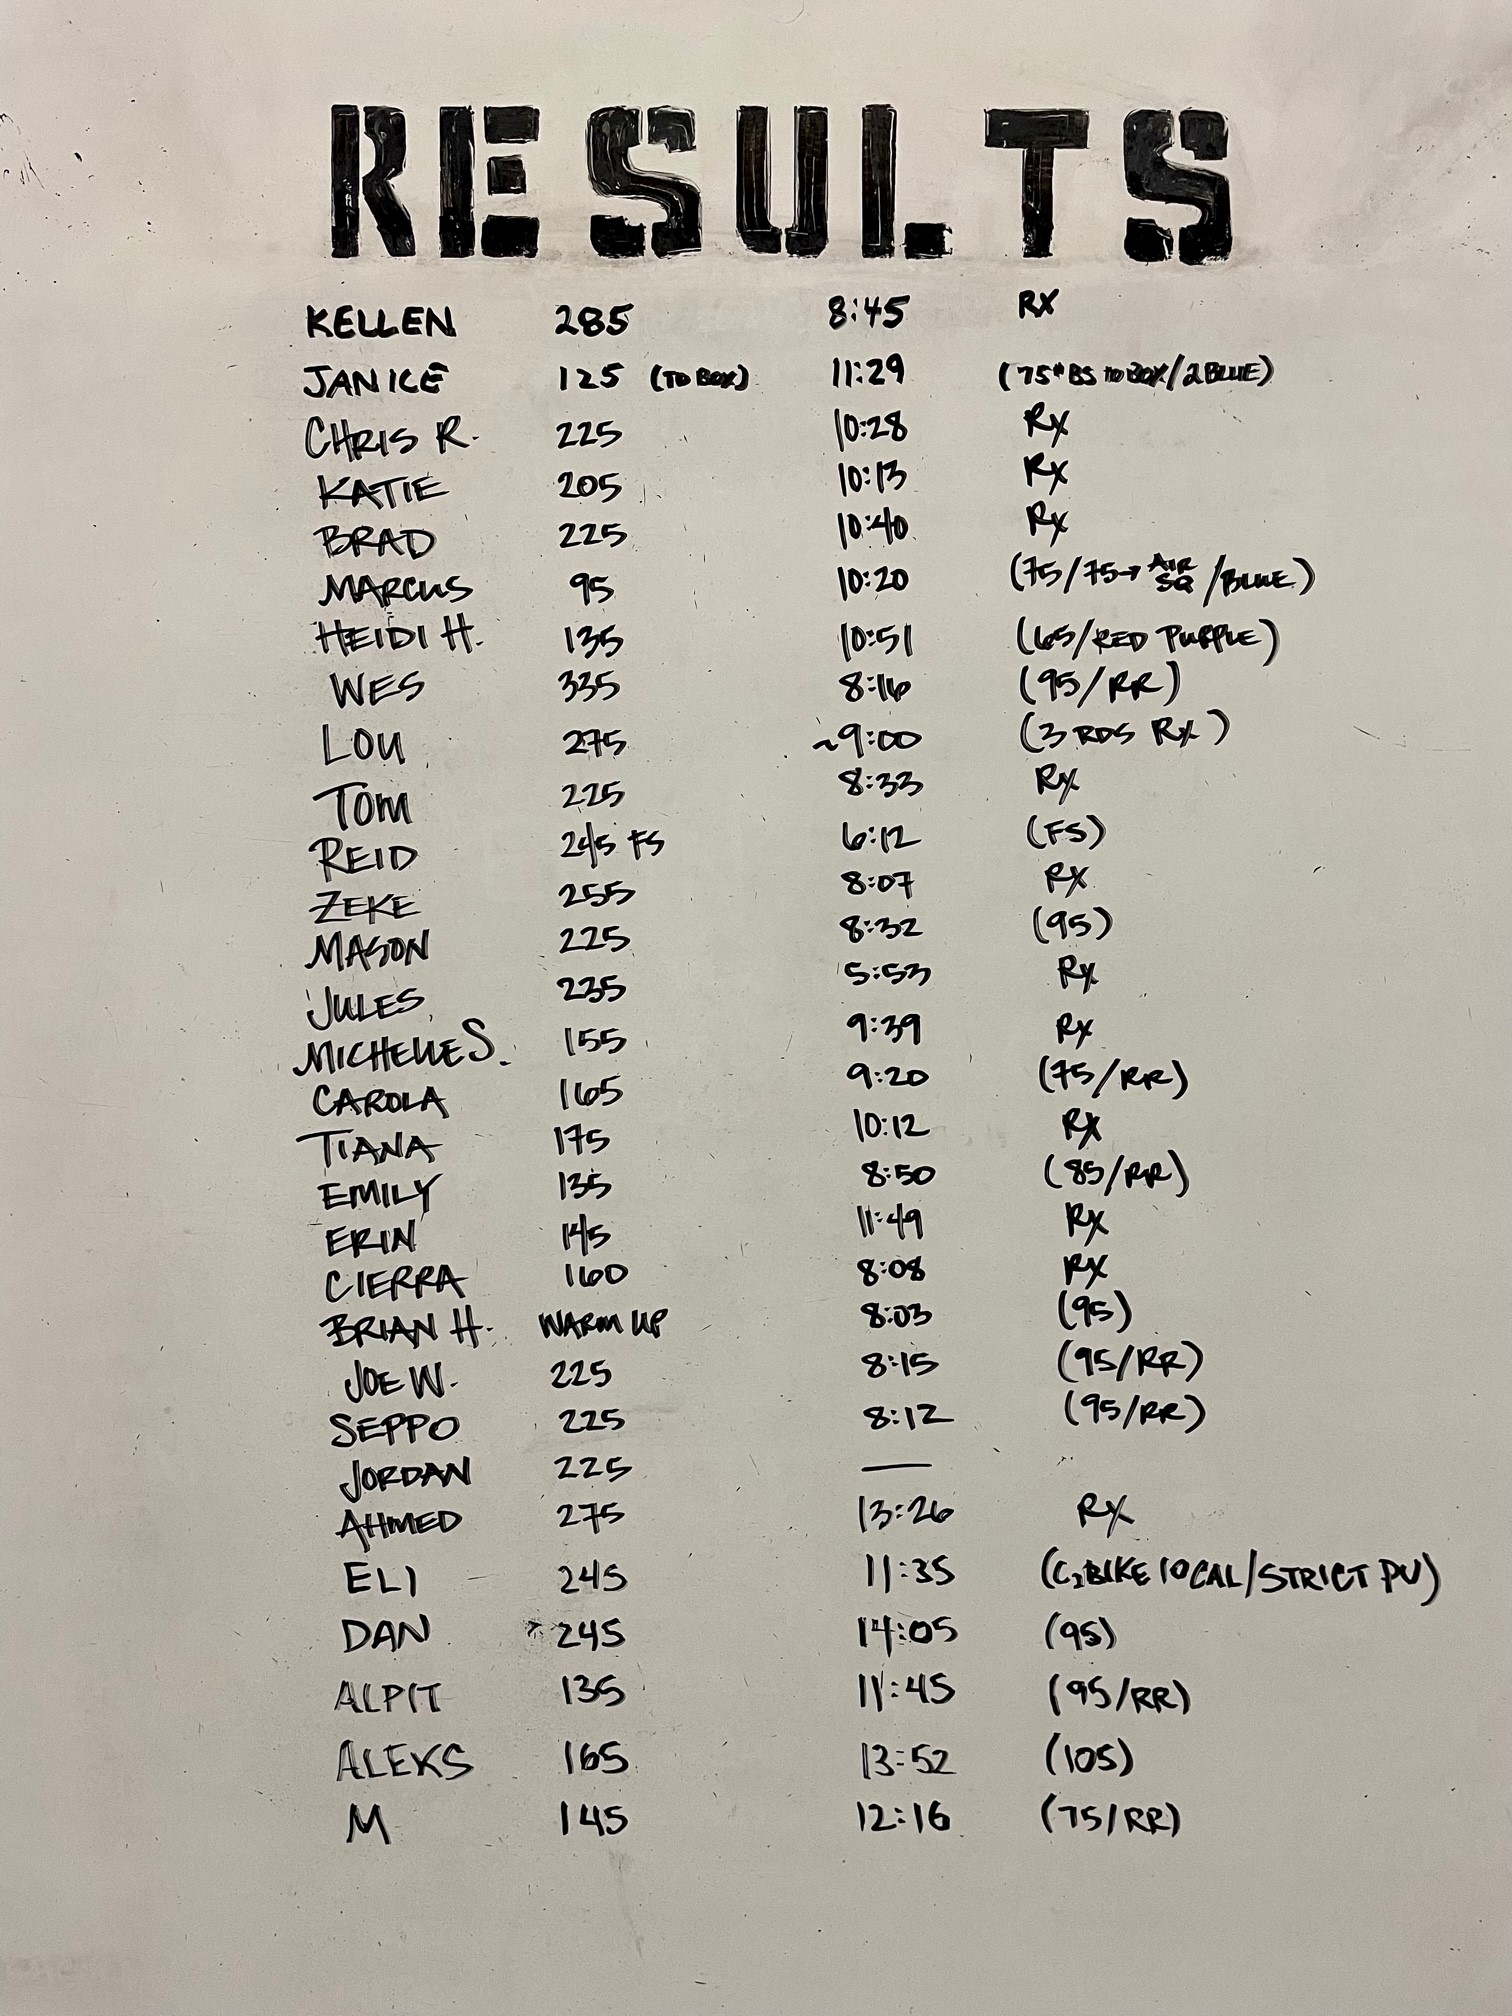 RESULTS
KELLEN 285 8:45 RX
JANICE 125 (TO BOX) 11:29 (75# BS TO BOX/2 BLUE)
CHRIS R. 225 10:28 Rx
KATIE 205 10:13 Rx
BRAD 225 10:40 Rx
MARCUS 95 10:20 (75/75→ AIR SQ /BLUE)
HEIDI H. 135 10:51 (65/RED PURPLE)
WES 335 8:16 (95/RR)
LOU 275 ~9:00 (3 RDS Rx)
TOM 225 8:33 Rx
REID 245 FS 6:12 (FS)
ZEKE 255 8:07 Rx
MASON 225 8:32 (95)
JULES 235 5:53 Rx
MICHELLE S. 155 9:39 Rx
CAROLA 165 9:20 (75/RR)
TIANA 175 10:12 Rx
EMILY 135 8:50 (85/RR)
ERIN 145 11:49 Rx
CIERRA 160 8:08 Rx
BRIAN H. WARM UP 8:03 (95)
JOE W. 225 8:15 (95/RR)
SEPPO 225 8:12 (95/RR)
JORDAN 225 —
AHMED 275 13:26 RX
ELI 245 11:35 (C2 BIKE 10 CAL/STRICT PU)
DAN 245 14:05 (95)
ALPIT 135 11:45 (95/RR)
ALEKS 165 13:52 (105)
M 145 12:16 (75/RR)